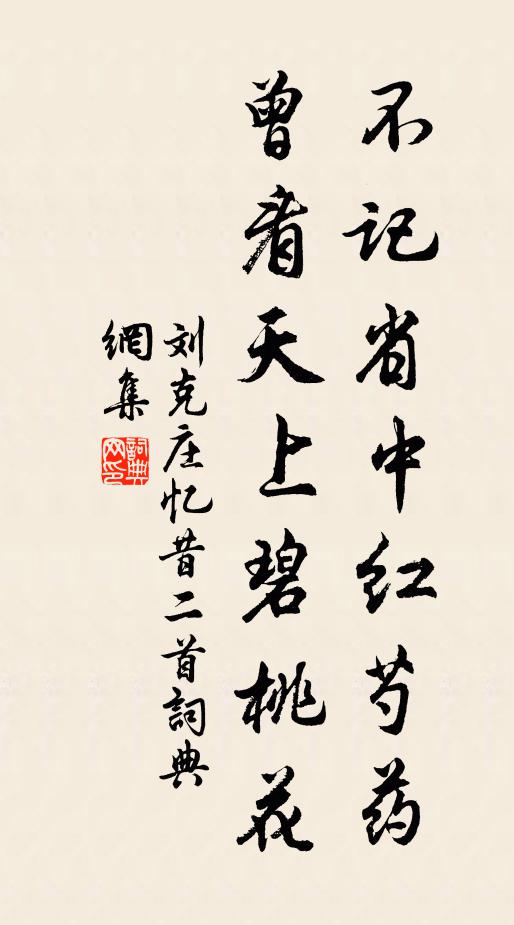 不记省中红芍药
曾看天上碧桃花
刘克庄忆昔二首詞典
網集
詞典
网印